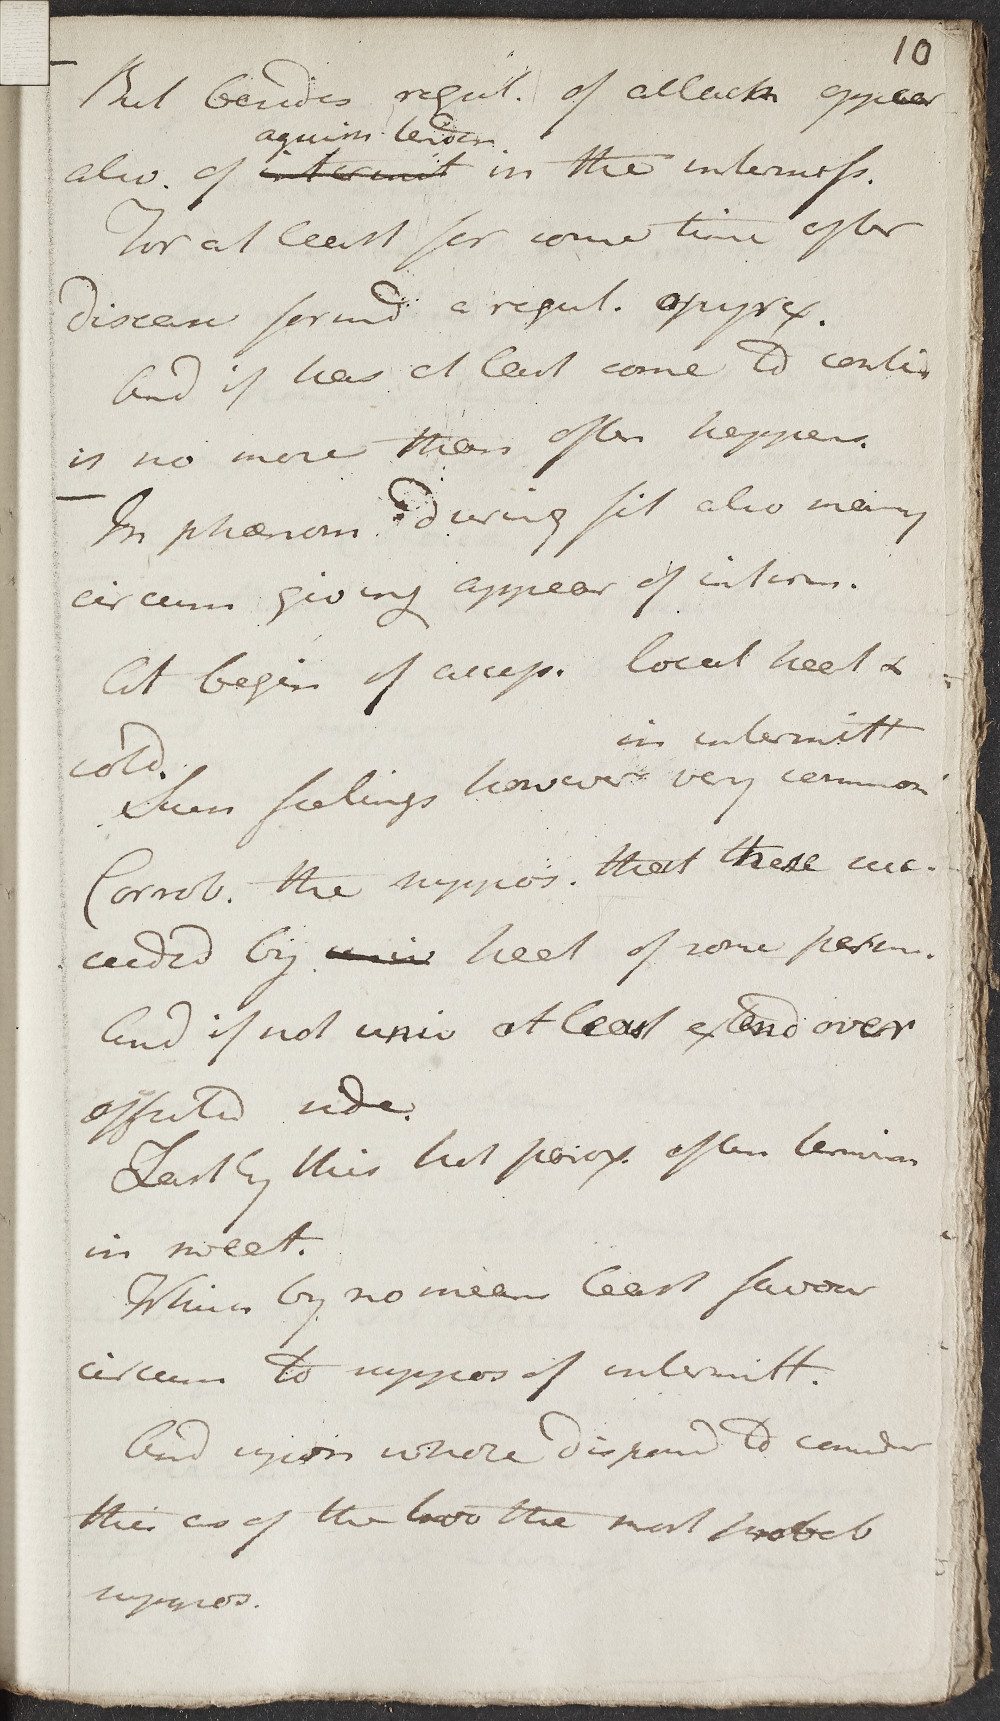 10
But besides regul. of attack appear
aguish tenden
also. of intermit in the intermiss.
For at least for some time after
disease formd a regul. apyrex.
And if has at last come to contin
is no more than often happens.
In phænom. during fit also many
circum giving appear of interm.
At begin of access. local heat &
cold.
in intermitt
Such feelings however very common
Corrob. the suppos. that these suc-
ceeded by univ heat of some perman.
And if not univ at least extend over
affected side.
Lastly this hot parox. often termin
in sweat.
Which by no mean least favour
circum to suppos of intermitt.
And upon whole disposed to consider
this as of the two the most probab
suppos.